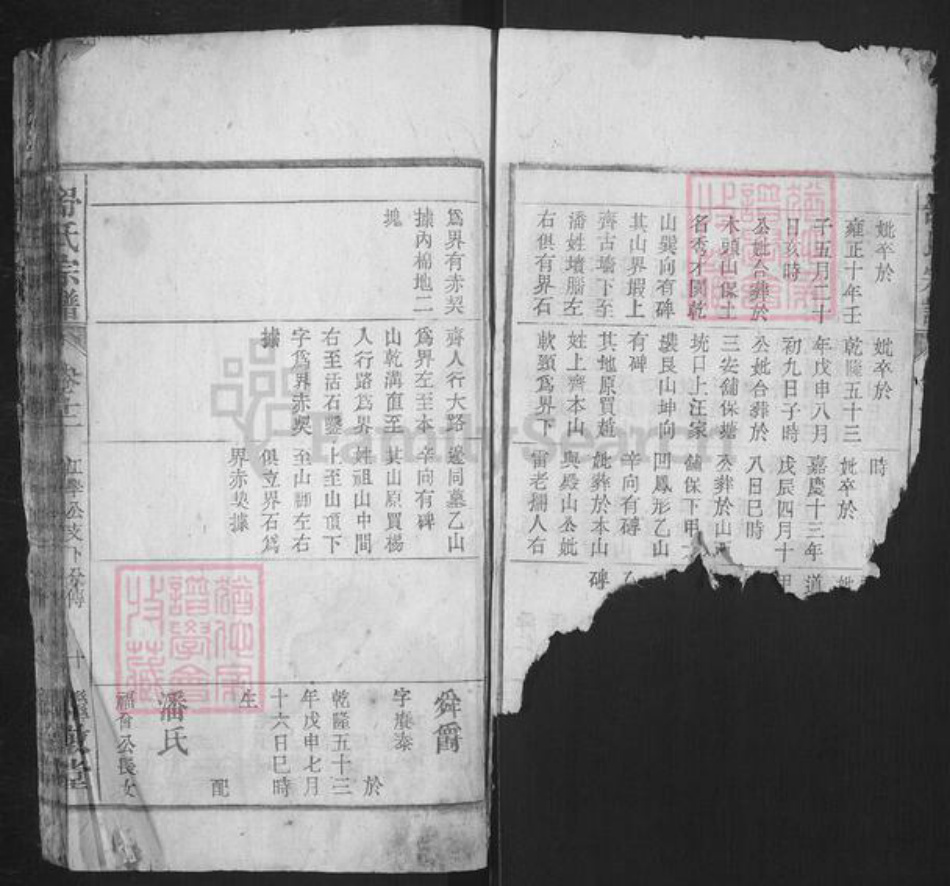 妣卒於
雍正十年壬
子五月二十
日亥時
公妣合葬於
木頭山保土
名秀才園乾
山巽向有碑
其山界塅上
齊古墈下至
潘姓墳腦左
右俱有界石
妣卒於
乾隆五十三
年戊申八月
初九日子時
公妣合葬於
三安舖保塘
坑口上汪家
艮山坤向
有碑
其地原買
姓上齊本山
軟頸為界下
時
妣卒於
嘉慶十三年
戊辰四月十
八日巳時
公葬於山
舖保下甲
回鳳形乙山
辛向有碑
妣葬於本山
與殿山公妣
雷老欄人右
道
碑
為界有赤契
據內棉地二
塊
齊人行大路
為界左至本
山乾溝直至
人行路為界
右至活石鑿
字為界赤契
據
遂同墓乙山
辛向有碑
其山原買楊
姓祖山中間
上至山頂下
至山腳左右
俱立界石為
界赤契據
舜爵
字賡泰
於
乾隆五十三
年戊申七月
十六日巳時
生
配
潘氏
福會公長女
舒氏宗譜
卷之二
公支下分傳
十
堂
猶他家
譜學會
收藏
猶他家
譜學會
收藏
FamilySearch